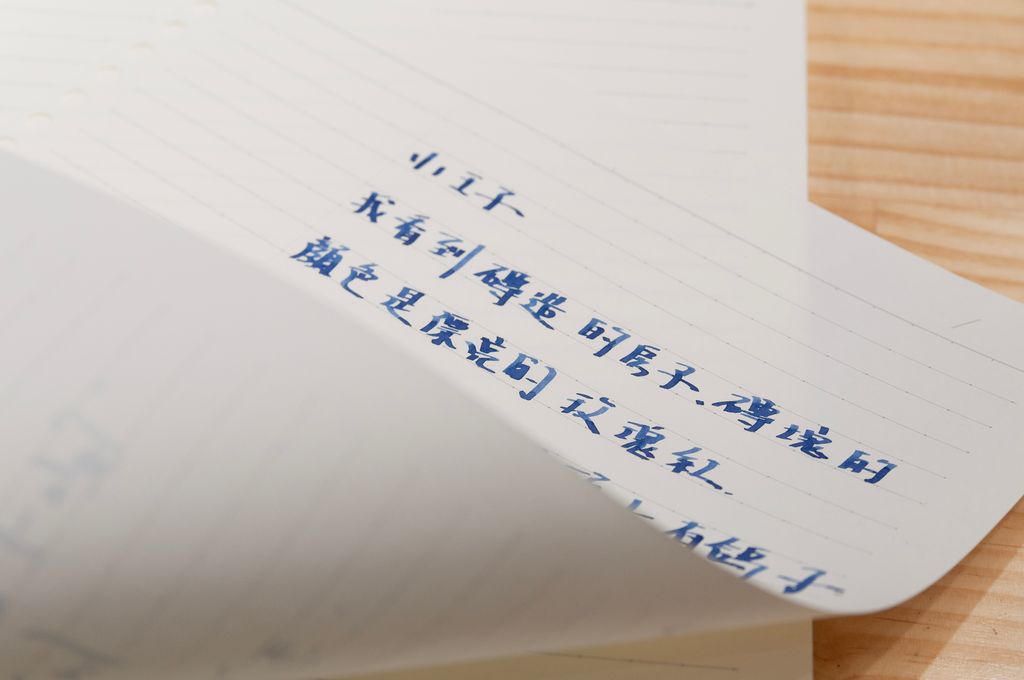 小王子
我看到磚造的房子、磚塊的
顏色是漂亮的玫瑰紅.
有鴿子